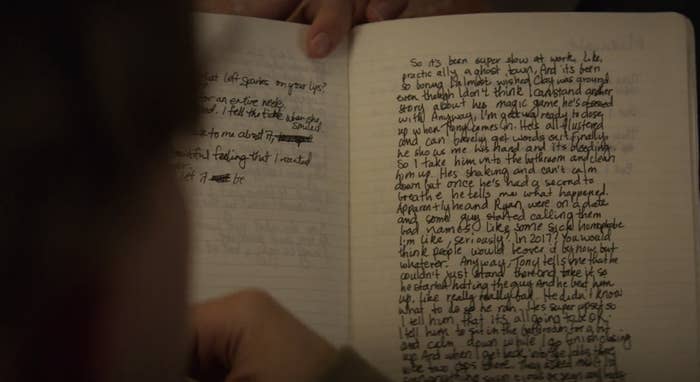 that left sparks on your lips?
for an entire week.
I tell the tickle when she
smiled
to me about it,
beautiful feeling that I wanted
let it be
So it's been super slow at work, like,
practically a ghost town. And it's been
so boring I almost wished Clay was around
even though I don't think I can stand another
story about his magic game he's obsessed
with. Anyway, I'm getting ready to close
up when Tony comes in. He's all flustered
and can barely get words out. Finally,
he shows me his hand and its bleeding.
So I take him into the bathroom and clean
him up. He's shaking and can't calm
down but once he's had a second to
breathe he tells me what happened.
Apparently he and Ryan were on a date
and some guy started calling them
bad names, like some sick homophobe
I'm like, seriously? In 2017? You would
think people would be over it by now but
whatever. Anyway, Tony tells me that he
couldn't just stand there and take it so
he started hitting the guy. And he beat him
up. Like really really bad. He didn't know
what to do so he ran. He's super upset so
I tell him that it's all going to be ok.
I tell him to sit in the bathroom for a bit
and calm down while I go finish closing
up. And when I get back into the lobby there
were two cops there. They asked me